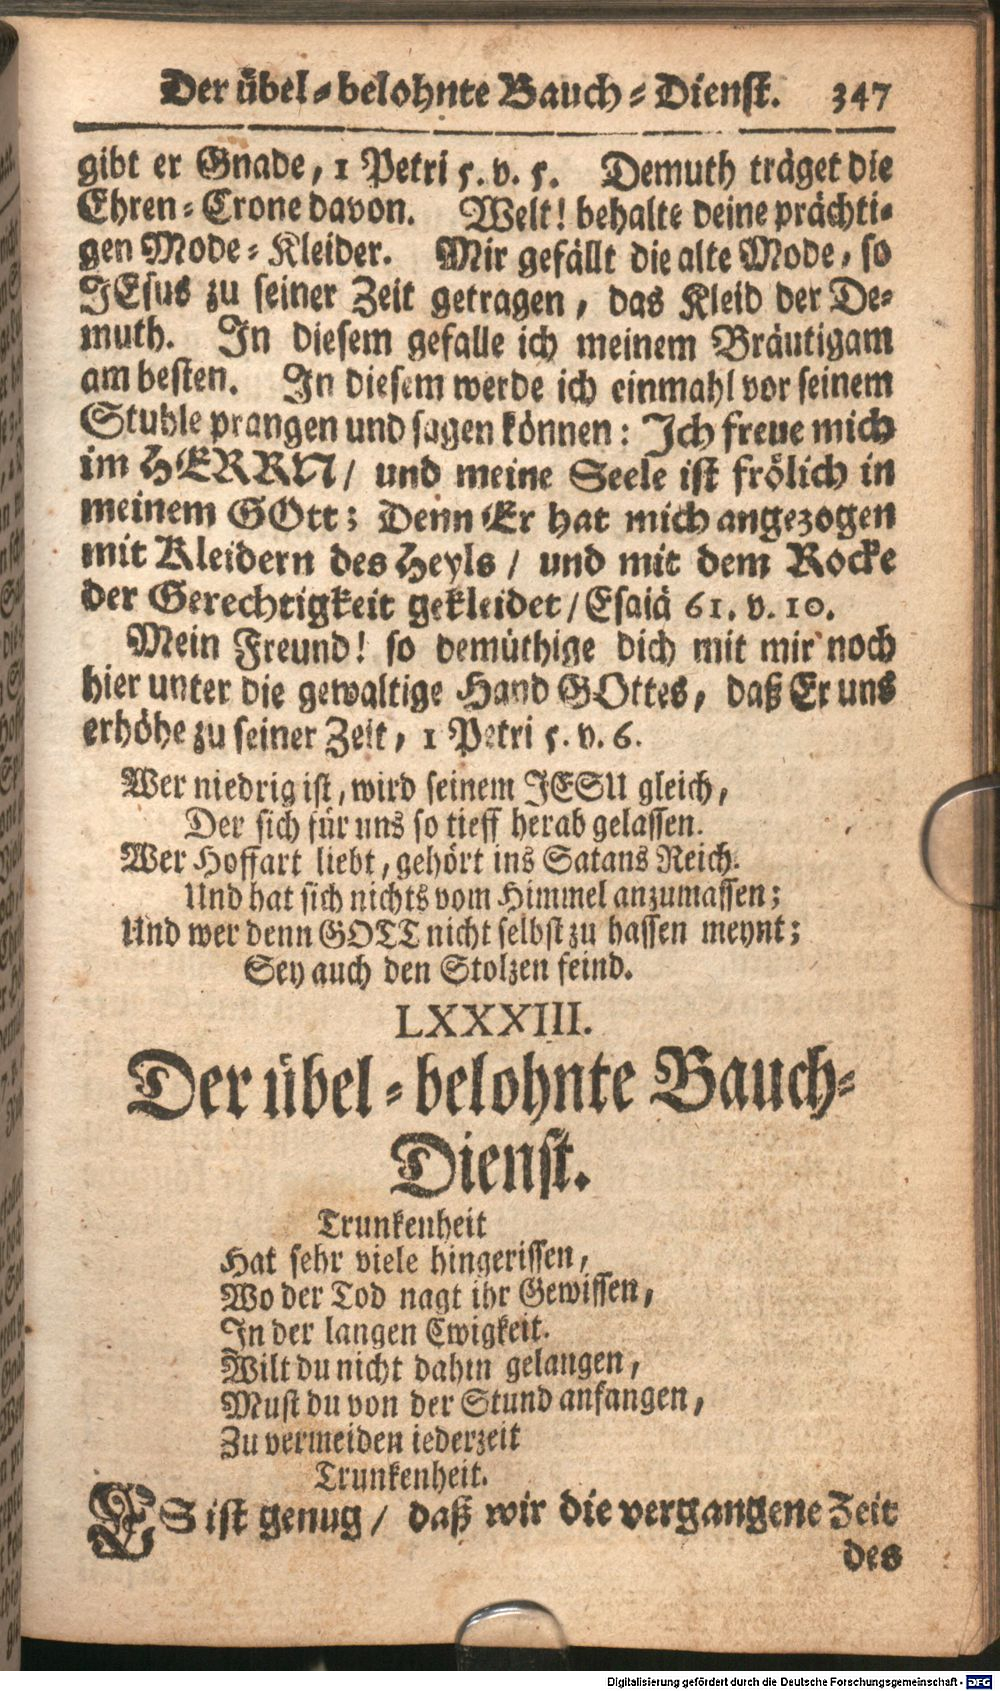 Der übel-belohnte Bauch-Dienst. 347
gibt er Gnade, 1 Petri 5. v. 5. Demuth träget die
Ehren-Crone davon. Welt! behalte deine prächti-
gen Mode-Kleider. Mir gefällt die alte Mode, so
JEsus zu seiner Zeit getragen, das Kleid der De-
muth. In diesem gefalle ich meinem Bräutigam
am besten. In diesem werde ich einmahl vor seinem
Stuhle prangen und sagen können: Ich freue mich
im HERRN/ und meine Seele ist frölich in
meinem GOtt; Denn Er hat mich angezogen
mit Kleidern des Heyls/ und mit dem Rocke
der Gerechtigkeit gekleidet/Esaiä 61. v. 10.
Mein Freund! so demüthige dich mit mir noch
hier unter die gewaltige Hand GOttes, daß Er uns
erhöhe zu seiner Zeit, 1 Petri 5. v. 6.
Wer niedrig ist, wird seinem JESU gleich,
Der sich für uns so tieff herab gelassen.
Wer Hoffart liebt, gehört ins Satans Reich.
Und hat sich nichts vom Himmel anzumassen;
Und wer denn GOTT nicht selbst zu hassen meynt;
Sey auch den Stolzen feind.
LXXXIII.
Der übel-belohnte Bauch-
Dienst.
Trunkenheit
Hat sehr viele hingerissen,
Wo der Tod nagt ihr Gewissen,
In der langen Ewigkeit.
Wilt du nicht dahin gelangen,
Must du von der Stund anfangen,
Zu vermeiden iederzeit
Trunkenheit.
ES ist genug/ daß wir die vergangene Zeit
des
Digitalisierung gefördert durch die Deutsche Forschungsgemeinschaft - DFG